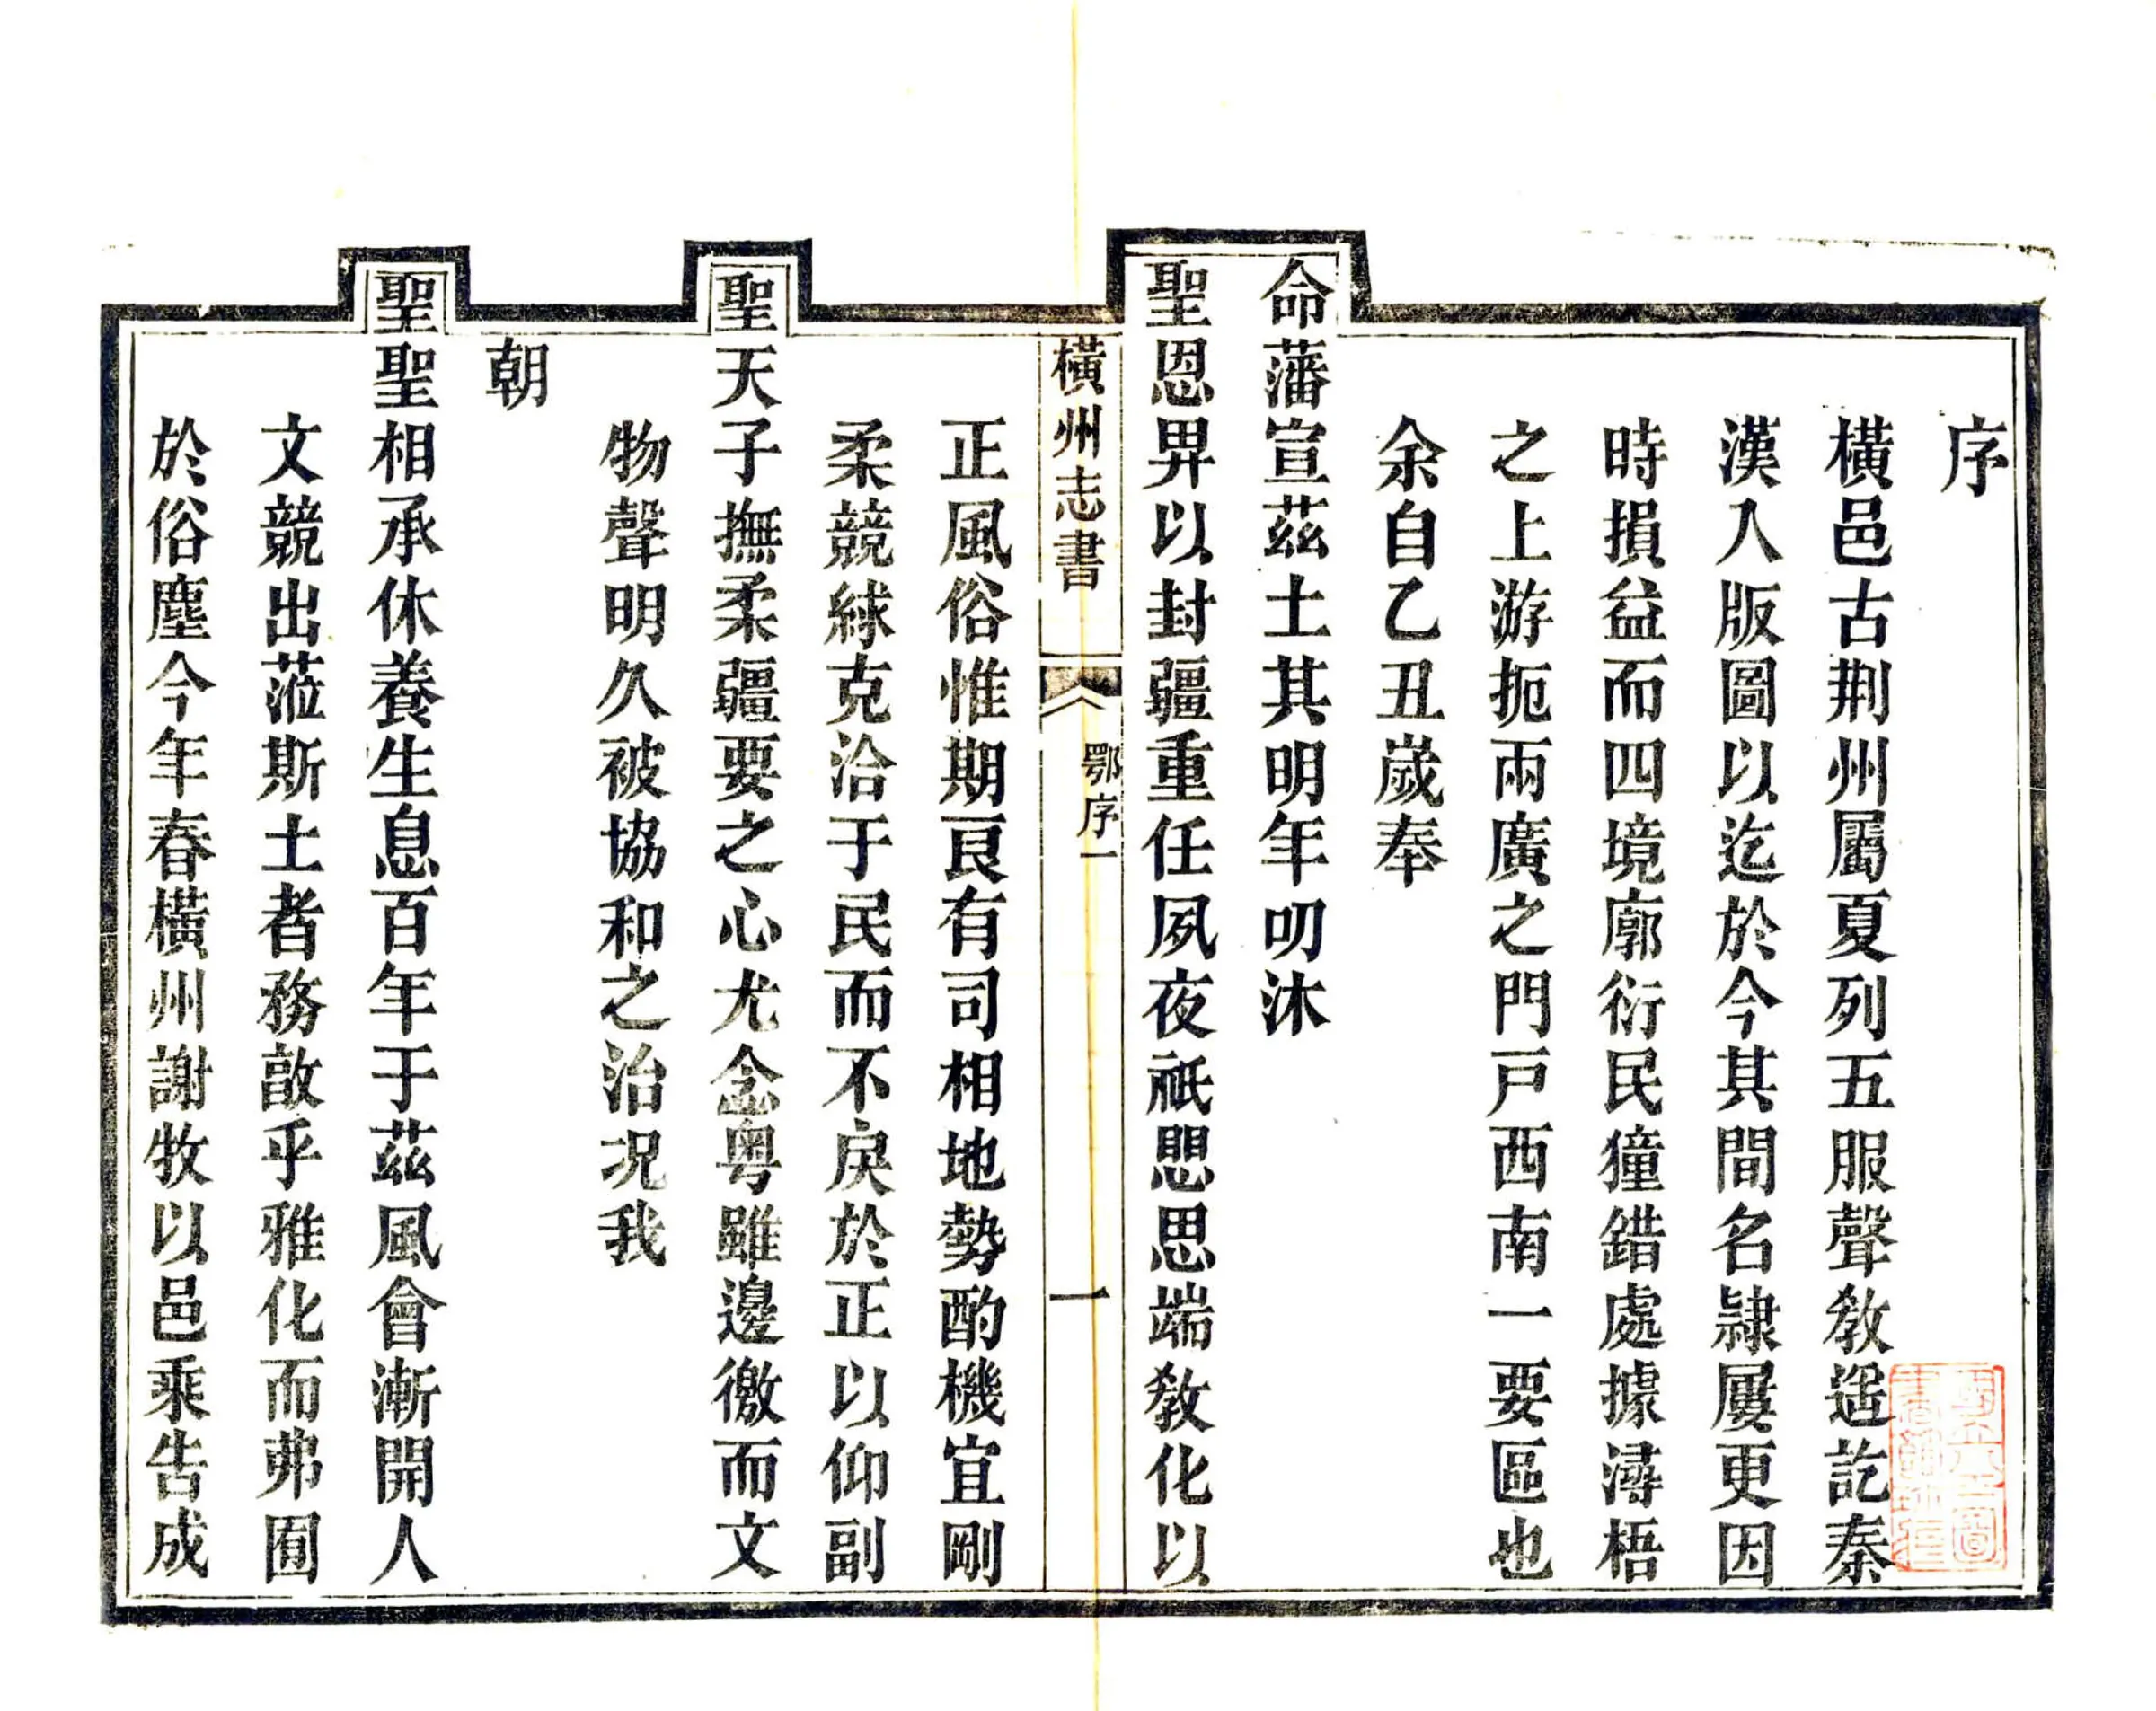 序
橫邑古荆州屬夏列五服聲教遥訖秦
漢入版圖以迄於今其間名隷屢更因
時損益而四境廓衍民獞錯處據潯梧
之上游扼兩廣之門戸西南一要區也
余自乙丑歲奉
命藩宣茲土其明年叨沐
聖恩畀以封疆重任夙夜祇思端教化以
橫州志書
鄂序一
一
正風俗惟期艮有司相地勢酌機宜剛
柔競絿克洽于民而不戾於正以仰副
聖天子撫柔疆要之心尤念粤雖邊徼而文
物聲明久被協和之治况我
朝
聖聖相承休養生息百年于茲風會漸開人
文競出蒞斯土者務敦乎雅化而弗囿
於俗塵今年春橫州謝牧以邑乘告成